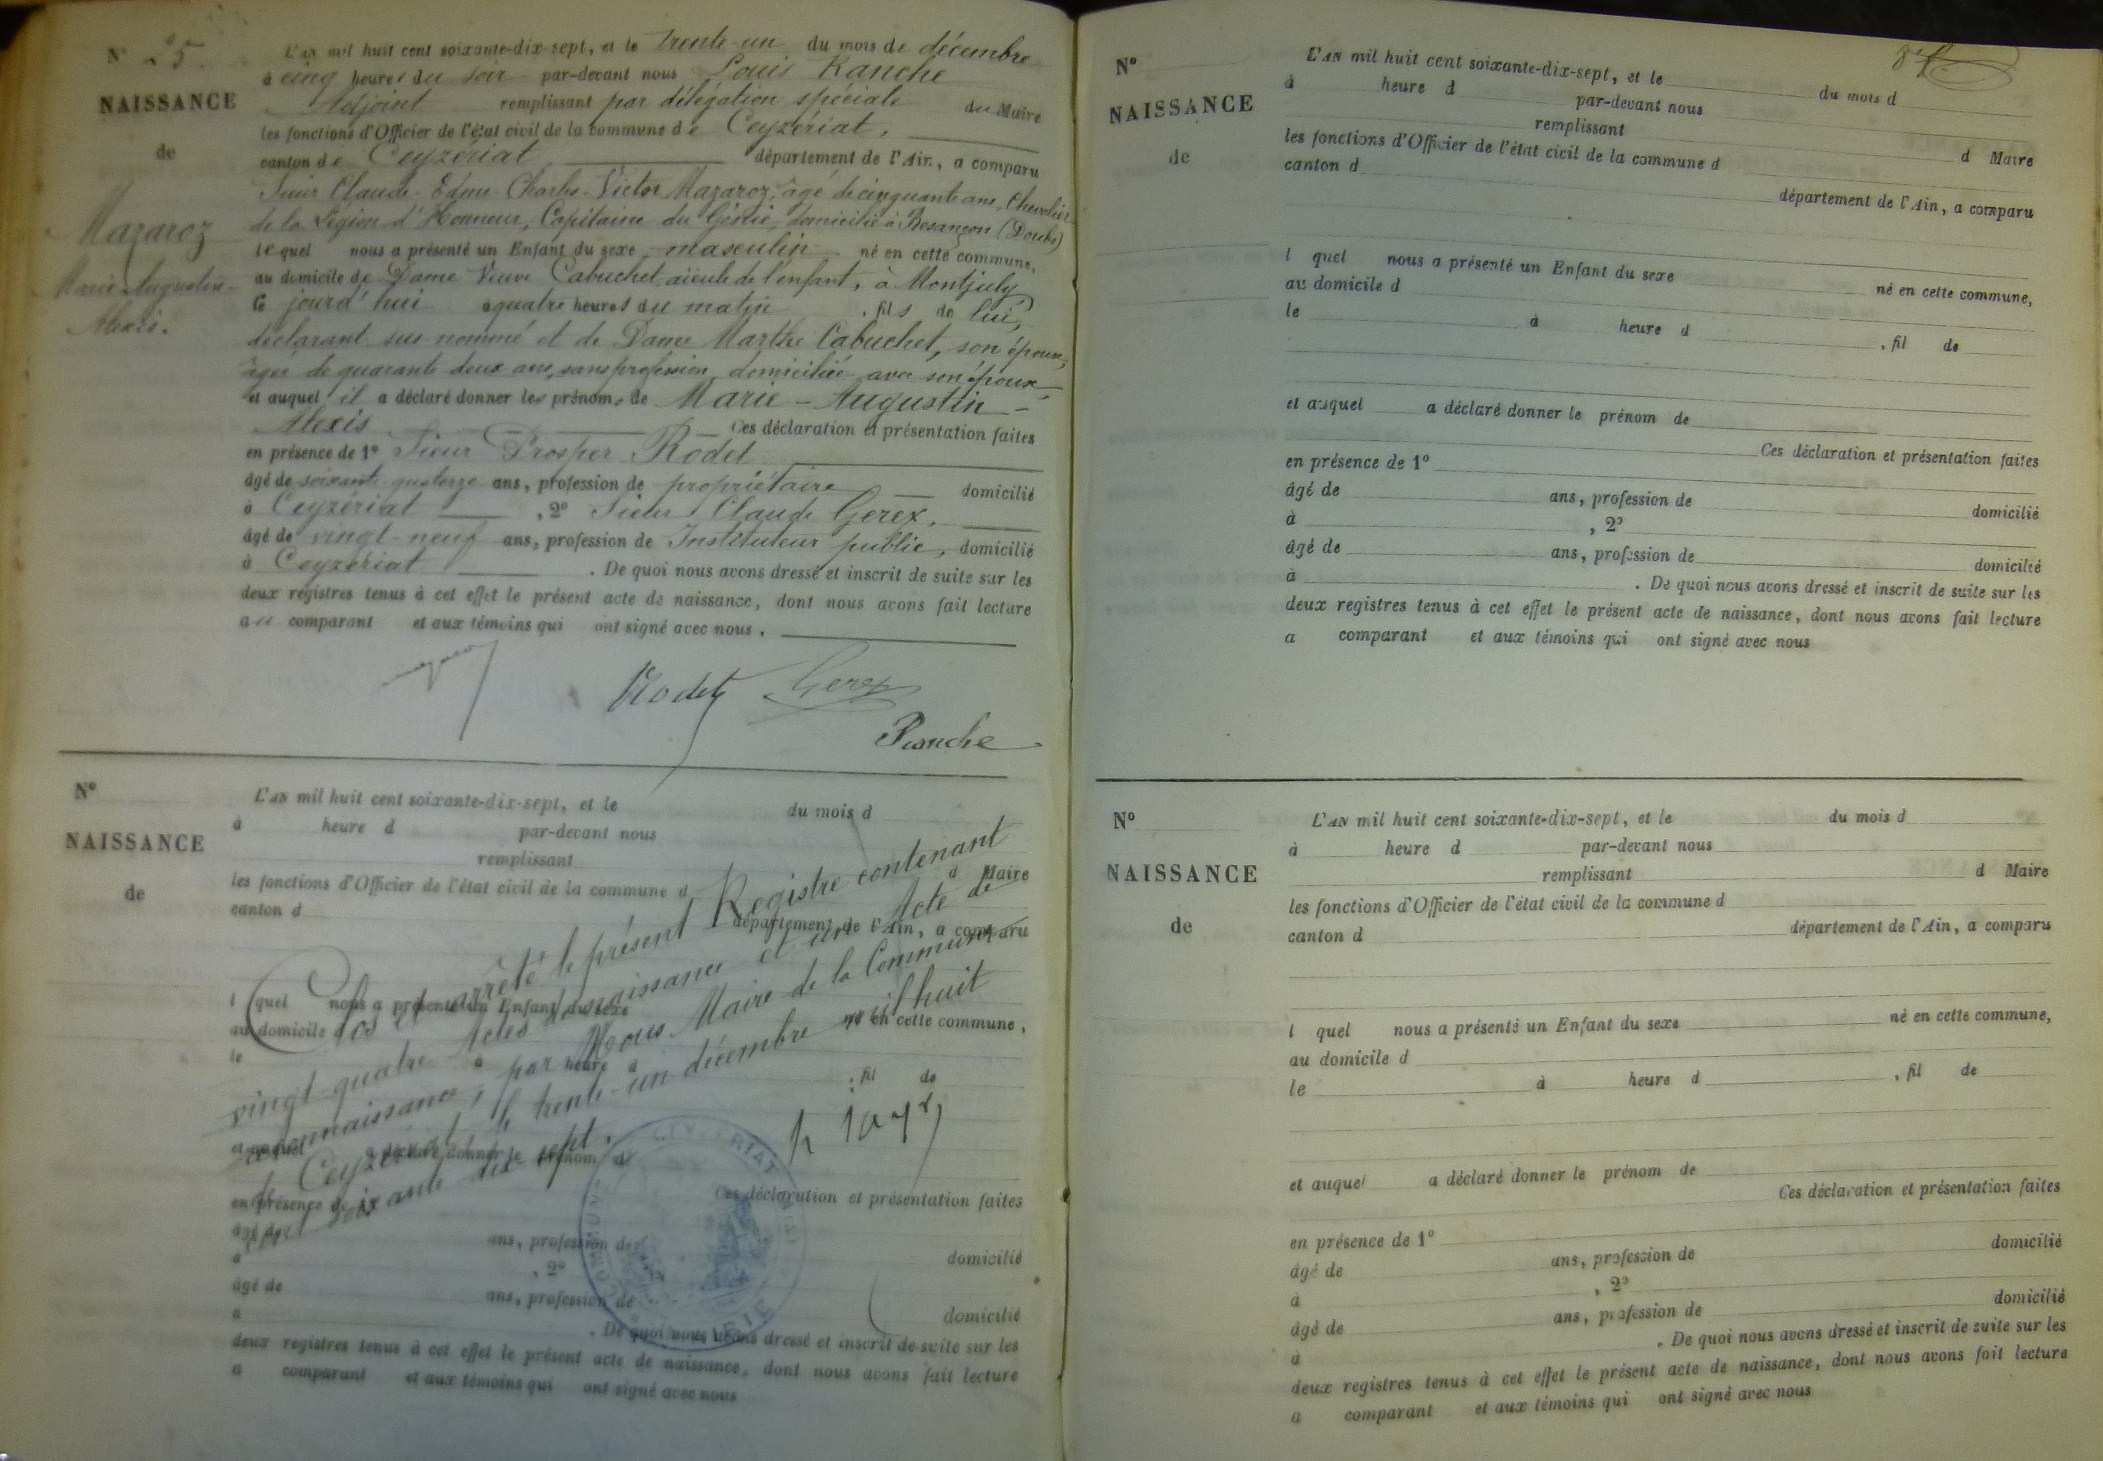 N° 25.
NAISSANCE
de
Mazaroz
Marie-Augustin-
Alexis.
L'AN mil huit cent soixante-dix-sept, et le trente-un du mois de décembre
à cinq heures du soir par-devant nous Louis Ranche
Adjoint remplissant par délégation spéciale du Maire
les fonctions d'Officier de l'état civil de la commune de Ceyzériat,
canton de Ceyzériat département de l'Ain, a comparu
Sieur Claude-Edme-Charles-Victor Mazaroz, âgé de cinquante ans, Chevalier
de la Légion d'Honneur, Capitaine du Génie, domicilié à Besançon (Doubs)
lequel nous a présenté un Enfant du sexe masculin né en cette commune,
au domicile de Dame Veuve Cabuchet, aïeule de l'enfant, à Montjuly
le jourd'hui à quatre heures du matin, fils de lui,
déclarant sus-nommé et de Dame Marthe Cabuchet, son épouse,
âgée de quarante deux ans, sans profession, domiciliée avec son époux
et auquel il a déclaré donner les prénoms de Marie-Augustin-
Alexis Ces déclaration et présentation faites
en présence de 1° Sieur Prosper Rodet
âgé de soixante quatorze ans, profession de propriétaire domicilié
à Ceyzériat, 2° Sieur Claude Gerex,
âgé de vingt-neuf ans, profession de Instituteur public, domicilié
à Ceyzériat. De quoi nous avons dressé et inscrit de suite sur les
deux registres tenus à cet effet le présent acte de naissance, dont nous avons fait lecture
au comparant et aux témoins qui ont signé avec nous.
Rodet Gerex
Ranche
N°
NAISSANCE
de
L'AN mil huit cent soixante-dix-sept, et le du mois d
à heure d par-devant nous
remplissant d Maire
les fonctions d'Officier de l'état civil de la commune d
canton d département de l'Ain, a comparu
l quel nous a présenté un Enfant du sexe
né en cette commune,
au domicile d
le à heure d
, fil de
et auquel a déclaré donner le prénom d
Ces déclaration et présentation faites
en présence de 1°
âgé de ans, profession de domicilié
à , 2°
âgé de ans, profession de domicilié
à . De quoi nous avons dressé et inscrit de suite sur les
deux registres tenus à cet effet le présent acte de naissance, dont nous avons fait lecture
a comparant et aux témoins qui ont signé avec nous
Clos et arrêté le présent Registre contenant
vingt quatre Actes de naissance et un Acte de
reconnaissance, par Nous Maire de la Commune
de Ceyzériat, le trente-un décembre mil huit
cent soixante dix-sept.
N°
NAISSANCE
de
L'AN mil huit cent soixante-dix-sept, et le du mois d
à heure d par-devant nous
remplissant d Maire
les fonctions d'Officier de l'état civil de la commune d
canton d département de l'Ain, a comparu
l quel nous a présenté un Enfant du sexe né en cette commune,
au domicile d
le à heure d , fil de
et auquel a déclaré donner le prénom de
Ces déclaration et présentation faites
en présence de 1°
âgé de ans, profession de domicilié
à , 2°
âgé de ans, profession de domicilié
à . De quoi nous avons dressé et inscrit de suite sur les
deux registres tenus à cet effet le présent acte de naissance, dont nous avons fait lecture
a comparant et aux témoins qui ont signé avec nous
N°
NAISSANCE
de
L'AN mil huit cent soixante-dix-sept, et le du mois d
à heure d par-devant nous
remplissant d Maire
les fonctions d'Officier de l'état civil de la commune d
canton d département de l'Ain, a comparu
l quel nous a présenté un Enfant du sexe né en cette commune,
au domicile d
le à heure d , fil de
et auquel a déclaré donner le prénom de
Ces déclaration et présentation faites
en présence de 1°
âgé de ans, profession de domicilié
à , 2°
âgé de ans, profession de domicilié
à . De quoi nous avons dressé et inscrit de suite sur les
deux registres tenus à cet effet le présent acte de naissance, dont nous avons fait lecture
a comparant et aux témoins qui ont signé avec nous